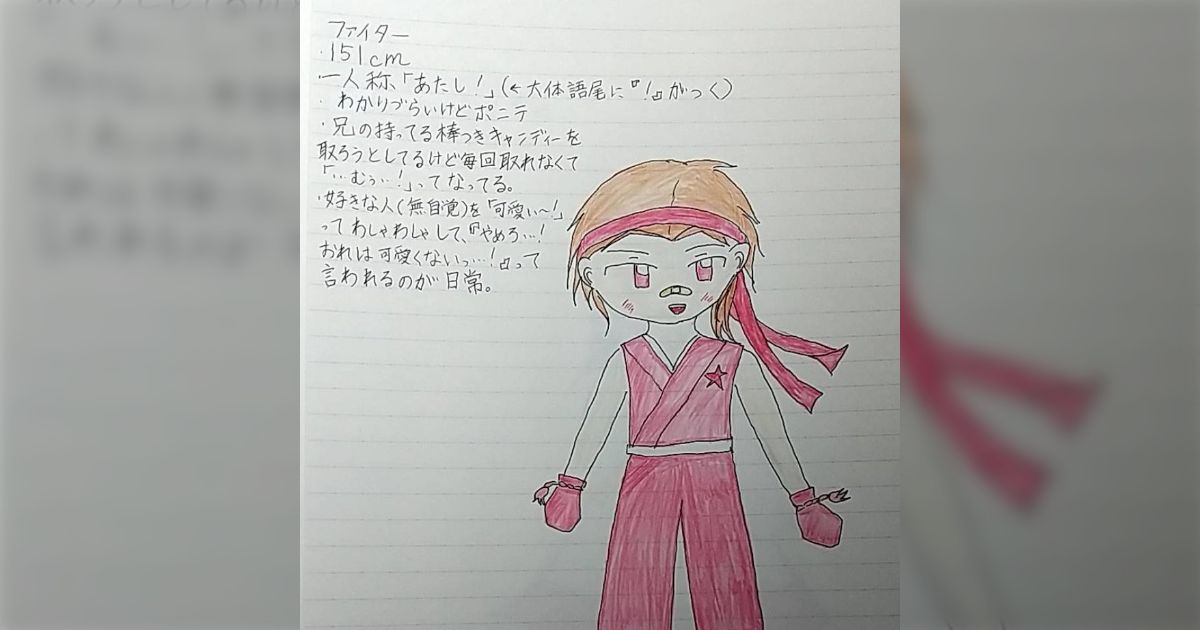 ファイター
・151cm
・一人称、「あたし!」(←大体語尾に『!』がつく)
・わかりづらいけどポニテ
・兄の持ってる棒つきキャンディーを
取ろうとしてるけど毎回取れなくて
「…むぅ…!」ってなってる。
・好きな人(無自覚)を「可愛い〜!」
ってわしゃわしゃして、『やめろ…!
おれは可愛くないっ…!』って
言われるのが日常。